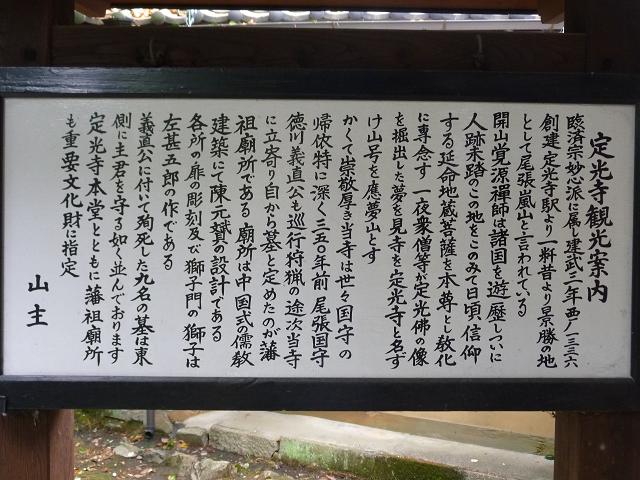 定光寺観光案内
臨済宗妙心派に属し建武二年西一三三六
創建定光寺駅より一粁昔より景勝の地
として尾張嵐山と言われている
開山覚源禅師は諸国を遊歴しついに
人跡未踏のこの地をこのみて日頃信仰
する延命地蔵菩薩を本尊とし教化
に専念す 一夜衆僧等が定光佛の像
を掘出した夢を見寺を定光寺と名ず
け山号を應夢山とす
かくて崇敬厚き当寺は世々国守の
帰依特に深く三五〇年前尾張国守
徳川義直公も巡行狩猟の途次当寺
に立寄り自から墓と定めたのが藩
祖廟所である 廟所は中国式の儒教
建築にて陳元贇の設計である
各所の扉の彫刻及び獅子門の獅子は
左甚五郎の作である
義直公に付いて殉死した九名の墓は東
側に主君を守る如く並んでおります
定光寺本堂とともに藩祖廟所
も重要文化財に指定
山主